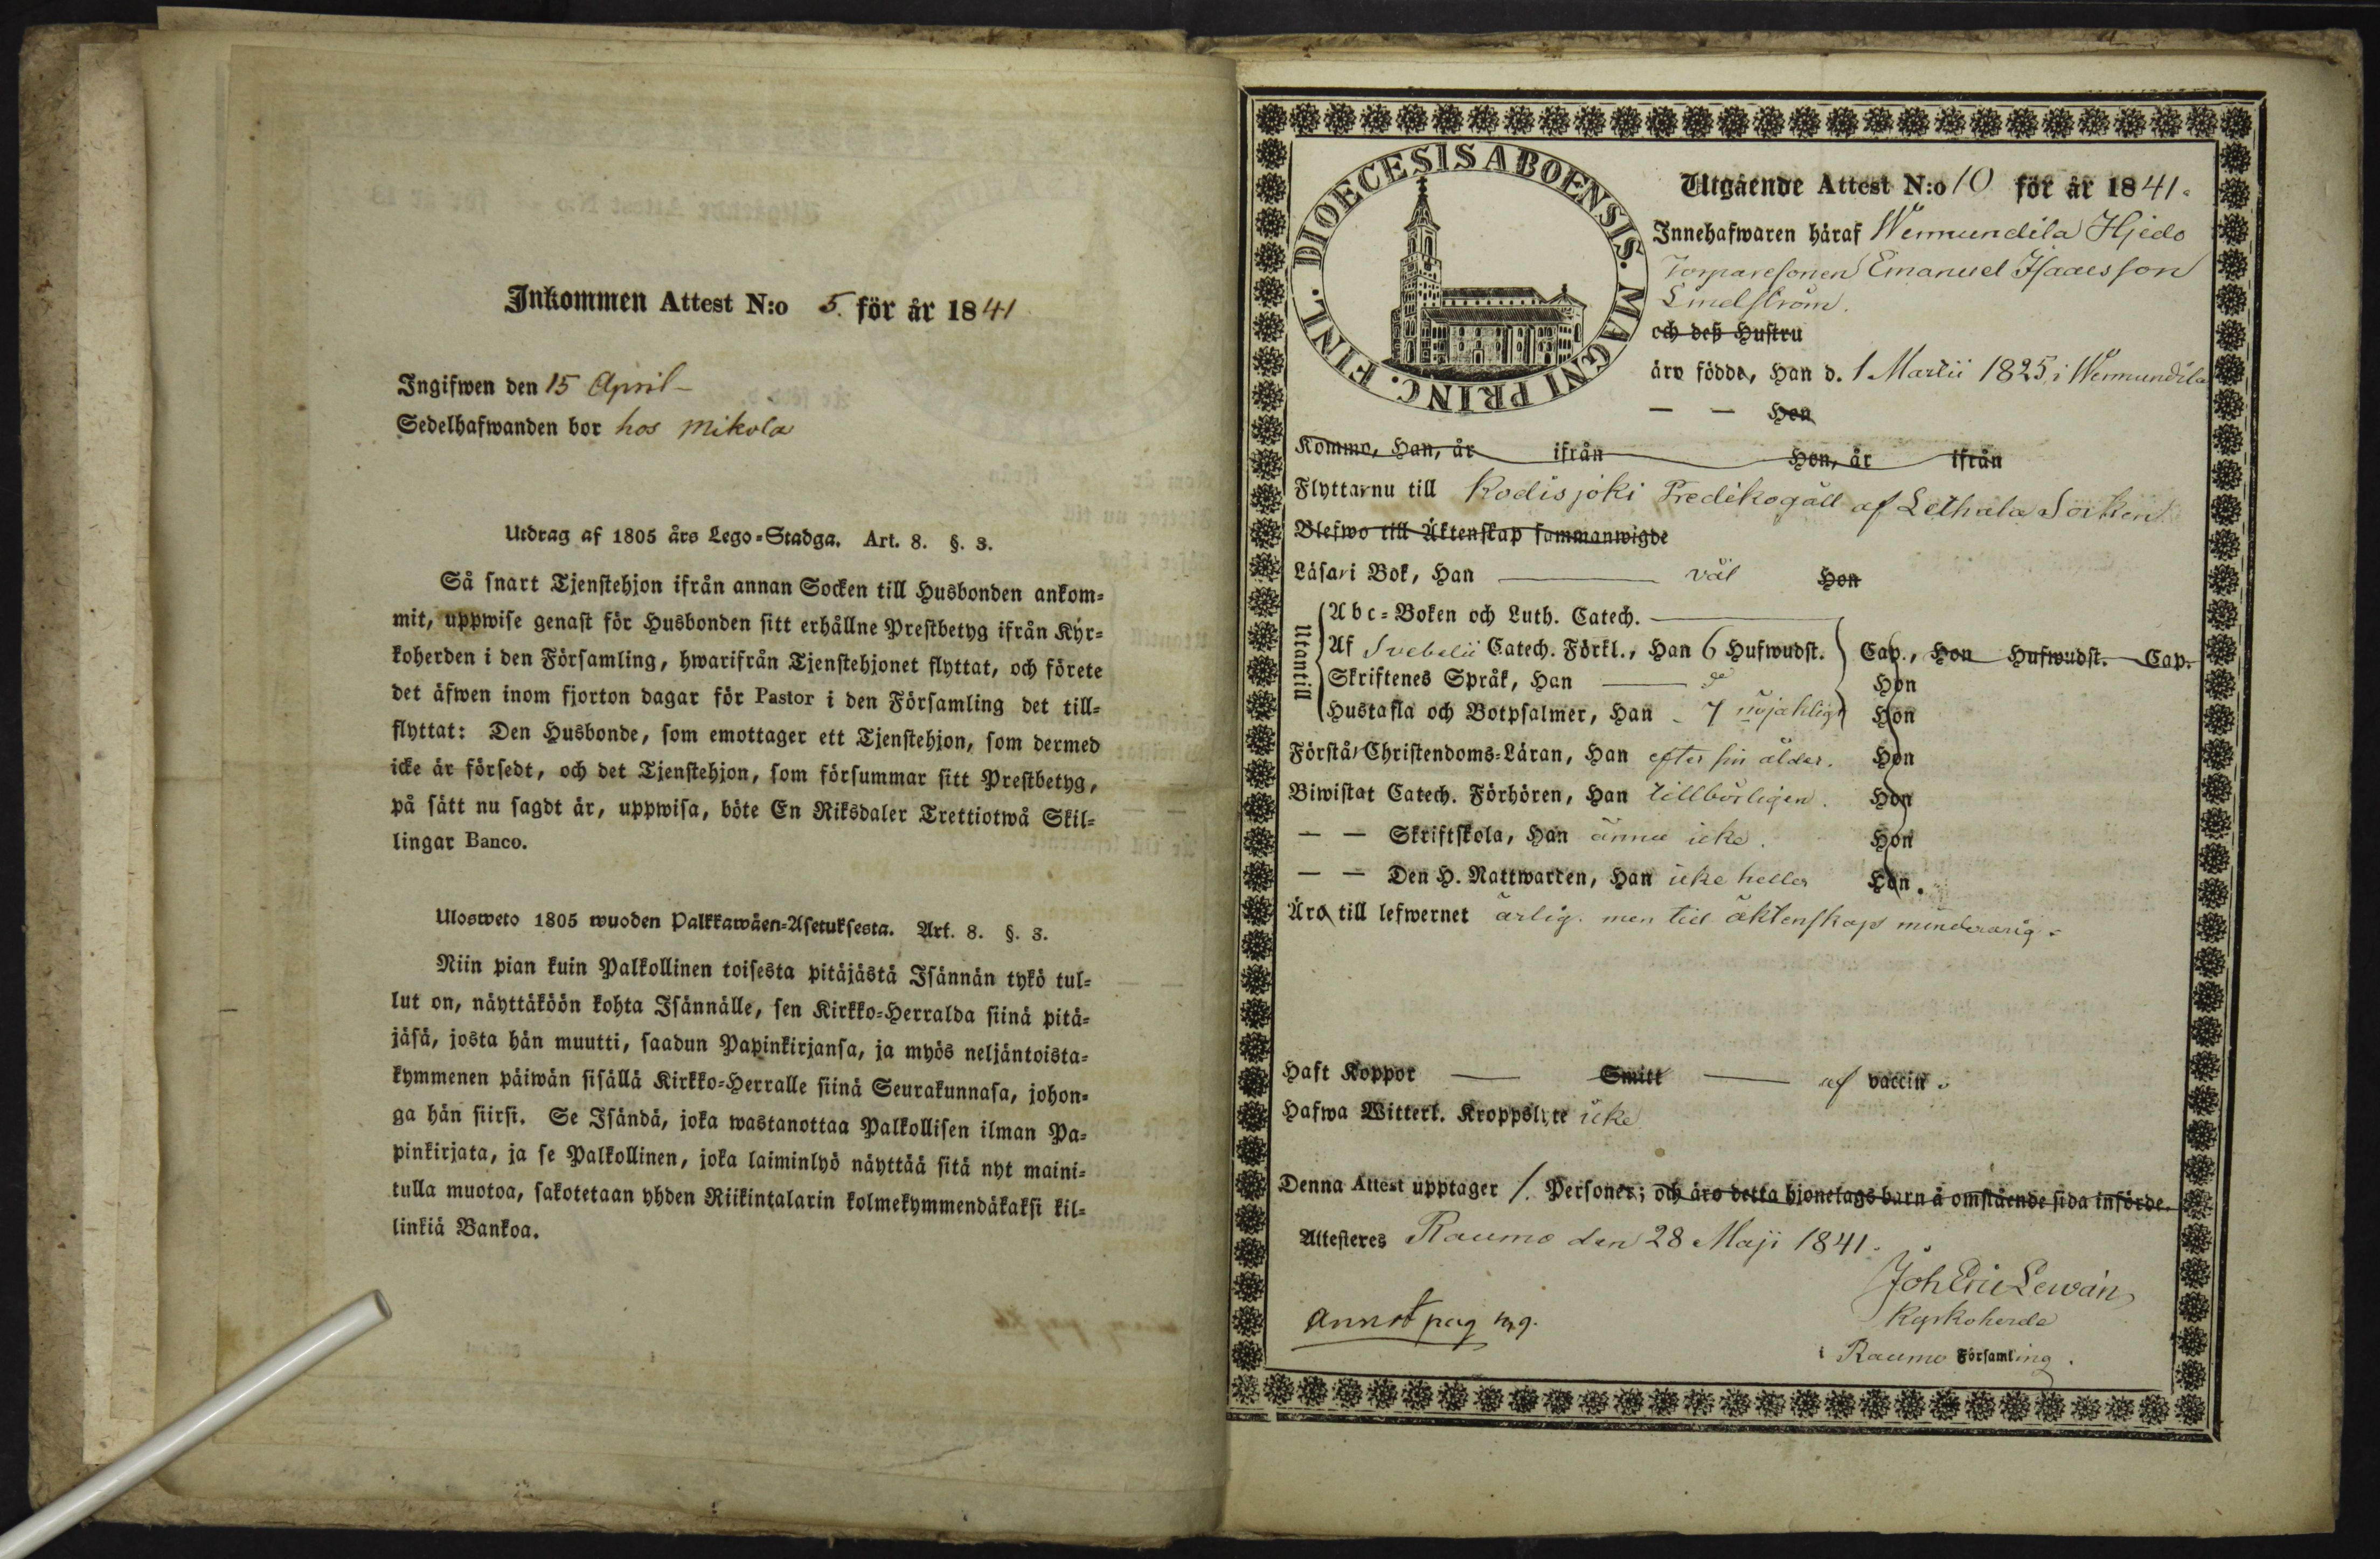 Inkommen Attest N:o 5. för år 1841
Ingifwen den 15 April -
Sedelhafwanden bor hos Mikola
Utdrag af 1805 års Lego=Stadga. Art. 8. §. 3.
Så snart Tjenstehjon ifrån annan Socken till Husbonden ankom=
mit, uppwise genast för Husbonden sitt erhållne Prestbetyg ifrån Kyr=
koherden i den Församling, hwarifrån Tjenstehjonet flyttat, och förete
det äfwen inom fjorton dagar för Pastor i den Församling det till=
flyttat: Den Husbonde, som emottager ett Tjenstehjon, som dermed
icke är försedt, och det Tjenstehjon, som försummar sitt Prestbetyg,
på sätt nu sagdt är, uppwisa, böte En Riksdaler Trettiotwå Skil=
lingar Banco.
Ulosweto 1805 wuoden Palkkawäen=Asetuksesta. Art. 8. §. 3.
Niin pian kuin Palkollinen toisesta pitäjästä Isännän tykö tul=
lut on, näyttäköön kohta Isännälle, sen Kirkko=Herralda siinä pitä=
jäsä, josta hän muutti, saadun Papinkirjansa, ja myös neljäntoista=
kymmenen päiwän sisällä Kirkko=Herralle siinä Seurakunnasa, johon=
ga hän siirsi. Se Isändä, joka wastanottaa Palkollisen ilman Pa=
pinkirjata, ja se Palkollinen, joka laiminlyö näyttää sitä nyt maini=
tulla muotoa, sakotetaan yhden Riikintalarin kolmekymmendäkaksi kil=
linkiä Bankoa.
DIOECESIS ABOENSIS. MAGNI PRINC. FINL.
Utgående Attest N:o 10 för år 1841.
Innehafwaren häraf Wermundila Hjedo
Torparesonen Emanuel Isaacsson
Lindström.
och deß Hustru
äro födde, Han d. 1 Martii 1825, i Wermundila
— — Hon
Komme, Han, år ifrån Hon, år ifrån
Flyttar nu till Kodisjoki Predikogäll af Lethala Socken
Blefwo till Äktenskap sammanwigde
Läsa i Bok, Han — väl Hon
Utantill
Abc=Boken och Luth. Catech. —
Af Svebelii Catech. Förkl., Han 6 Hufwudst. Cap., Hon Hufwudst. Cap.
Skriftenes Språk, Han — Hon
Hustafla och Botpsalmer, Han - 7 nöjaktligt Hon
Förstå Christendoms=Läran, Han efter sin ålder. Hon
Biwistat Catech. Förhören, Han tillbörligen. Hon
— — Skriftskola, Han ännu icke. Hon
— — Den H. Nattwarden, Han icke heller Hon.
Äro till lefwernet ärlig. men till äktenskap minderårig.
Haft Koppor — Smitt — af vaccin.
Hafwa Witterl. Kroppslyte icke
Denna Attest upptager 1. Personer; och äro detta hjonelags barn å omstående sida införde.
Attesteres Raumo den 28 Maji 1841.
Joh Eric Lewán
Kyrkoherde
annot pag
i Raumo Församling.